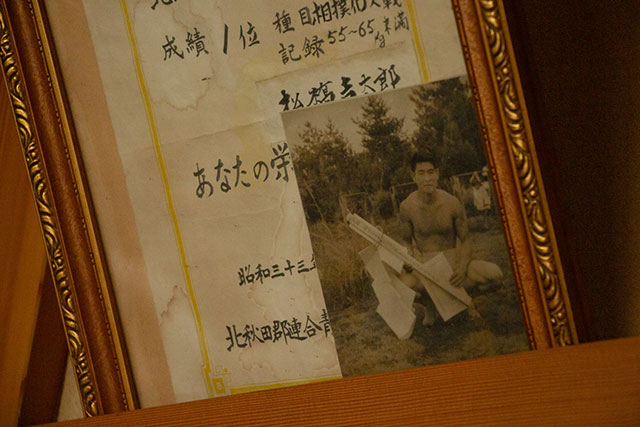 種目相撲10人戦
成績 1位
記録55~65kg未満
松橋吉太郎
あなたの栄
昭和三十三年
北秋田郡連合青